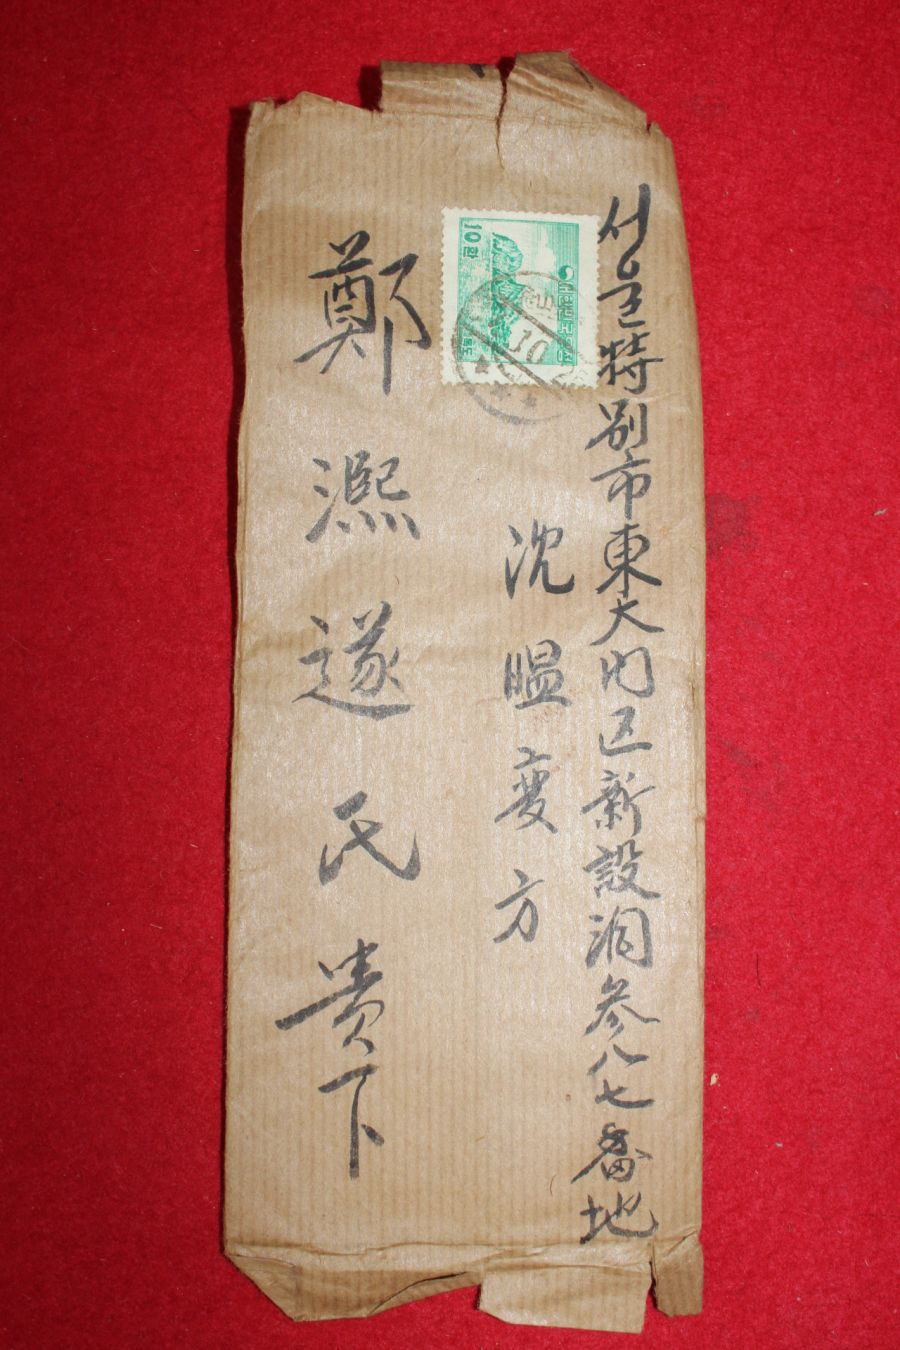 서울特別市東大门区新設洞参八七番地
沈㬈変方
鄭濕遂氏貴下
10환
대한민국우표
10